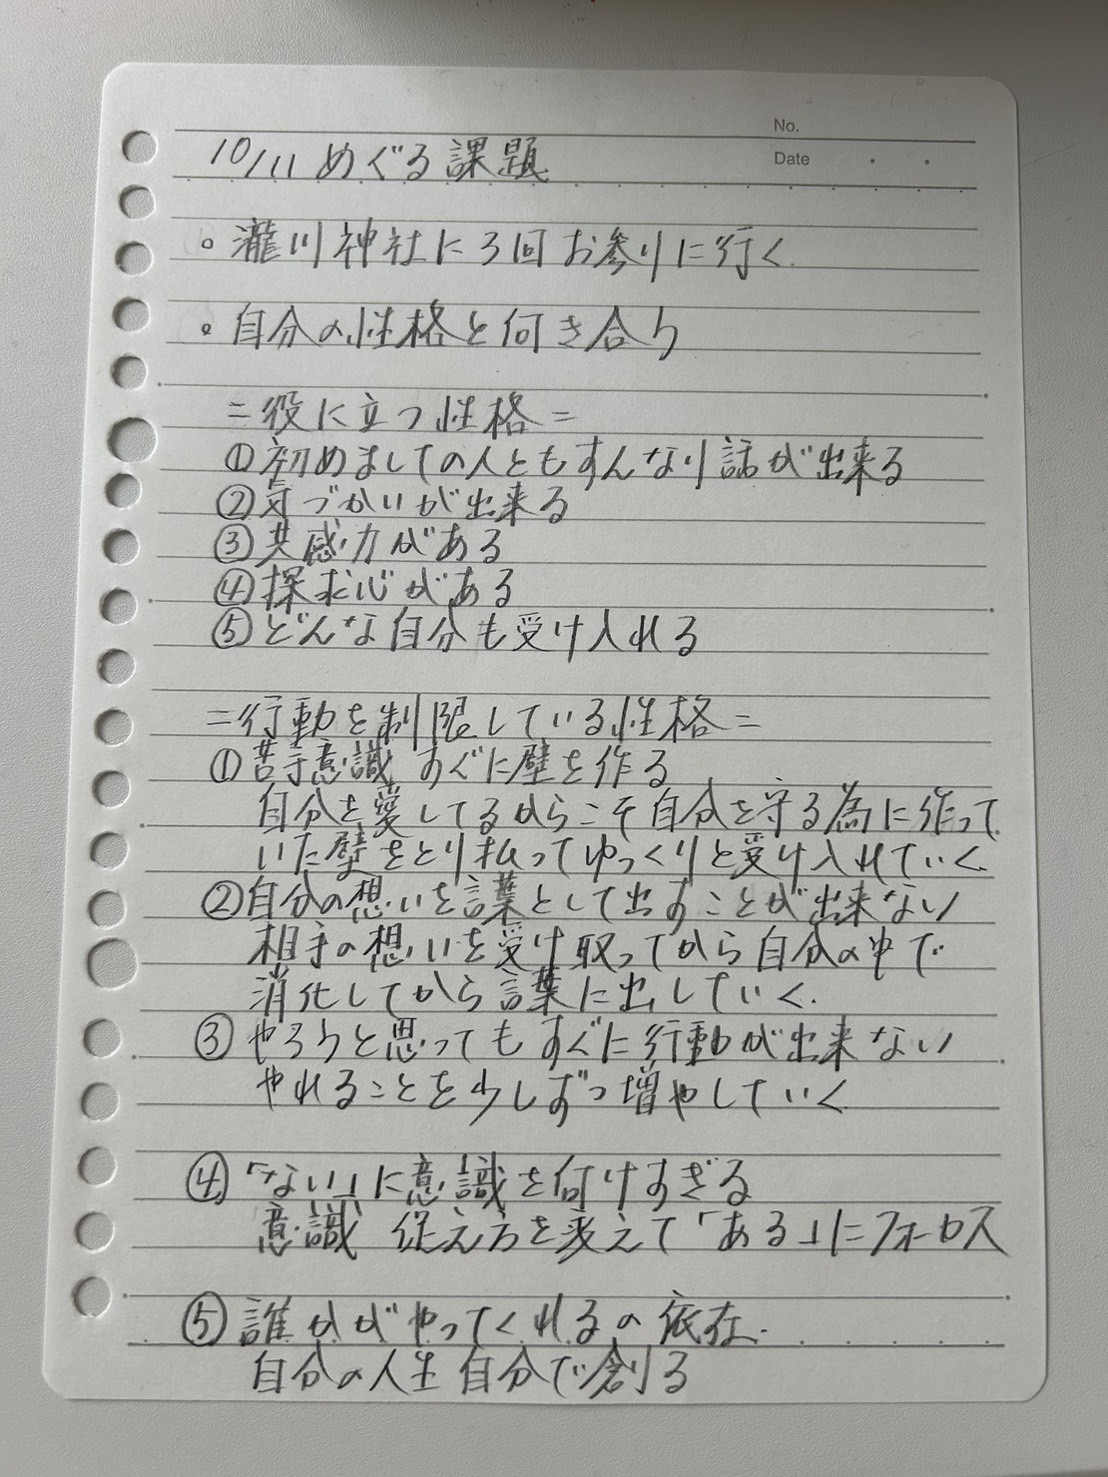 No.
Date
10/11 めぐる課題
。瀧川神社に3回お参りに行く
。自分の性格と向き合う
=役に立つ性格=
①初めましての人ともすんなり話が出来る
②気づかいが出来る
③共感力がある
④探求心がある
⑤どんな自分も受け入れる
=行動を制限している性格=
①苦手意識 すぐに壁を作る
自分を愛してるからこそ自分を守る為に作って
いた壁をとり払ってゆっくりと受け入れていく
②自分の想いを言葉として出すことが出来ない
相手の想いを受け取ってから自分の中で
消化してから言葉に出していく.
③やろうと思ってもすぐに行動が出来ない
やれることを少しずつ増やしていく
④「ない」に意識を向けすぎる
意識 捉え方を変えて「ある」にフォーカス
⑤誰かがやってくれるの依存.
自分の人生 自分で創る